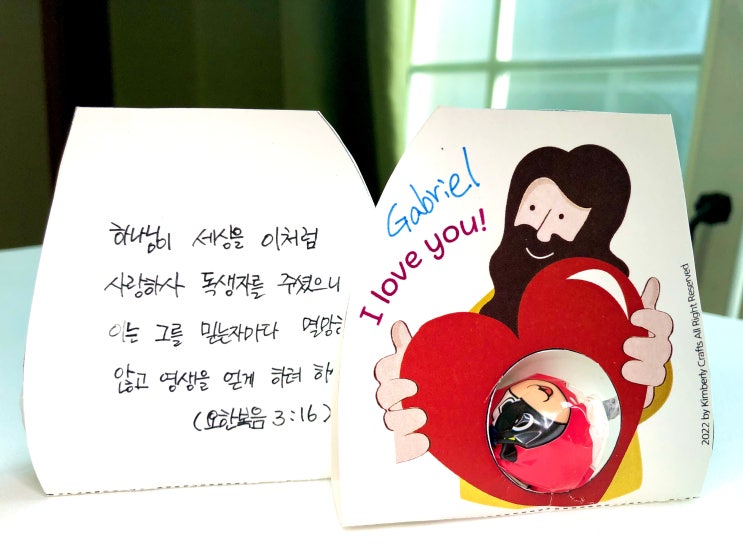 하나님이 세상을 이처럼
사랑하사 독생자를 주셨으니
이는 그를 믿는자마다
않고 영생을 얻게 하려
(요한복음 3:16)
Gabriel
I love you!
2022 by Kimberly Crafts All Right Reserved